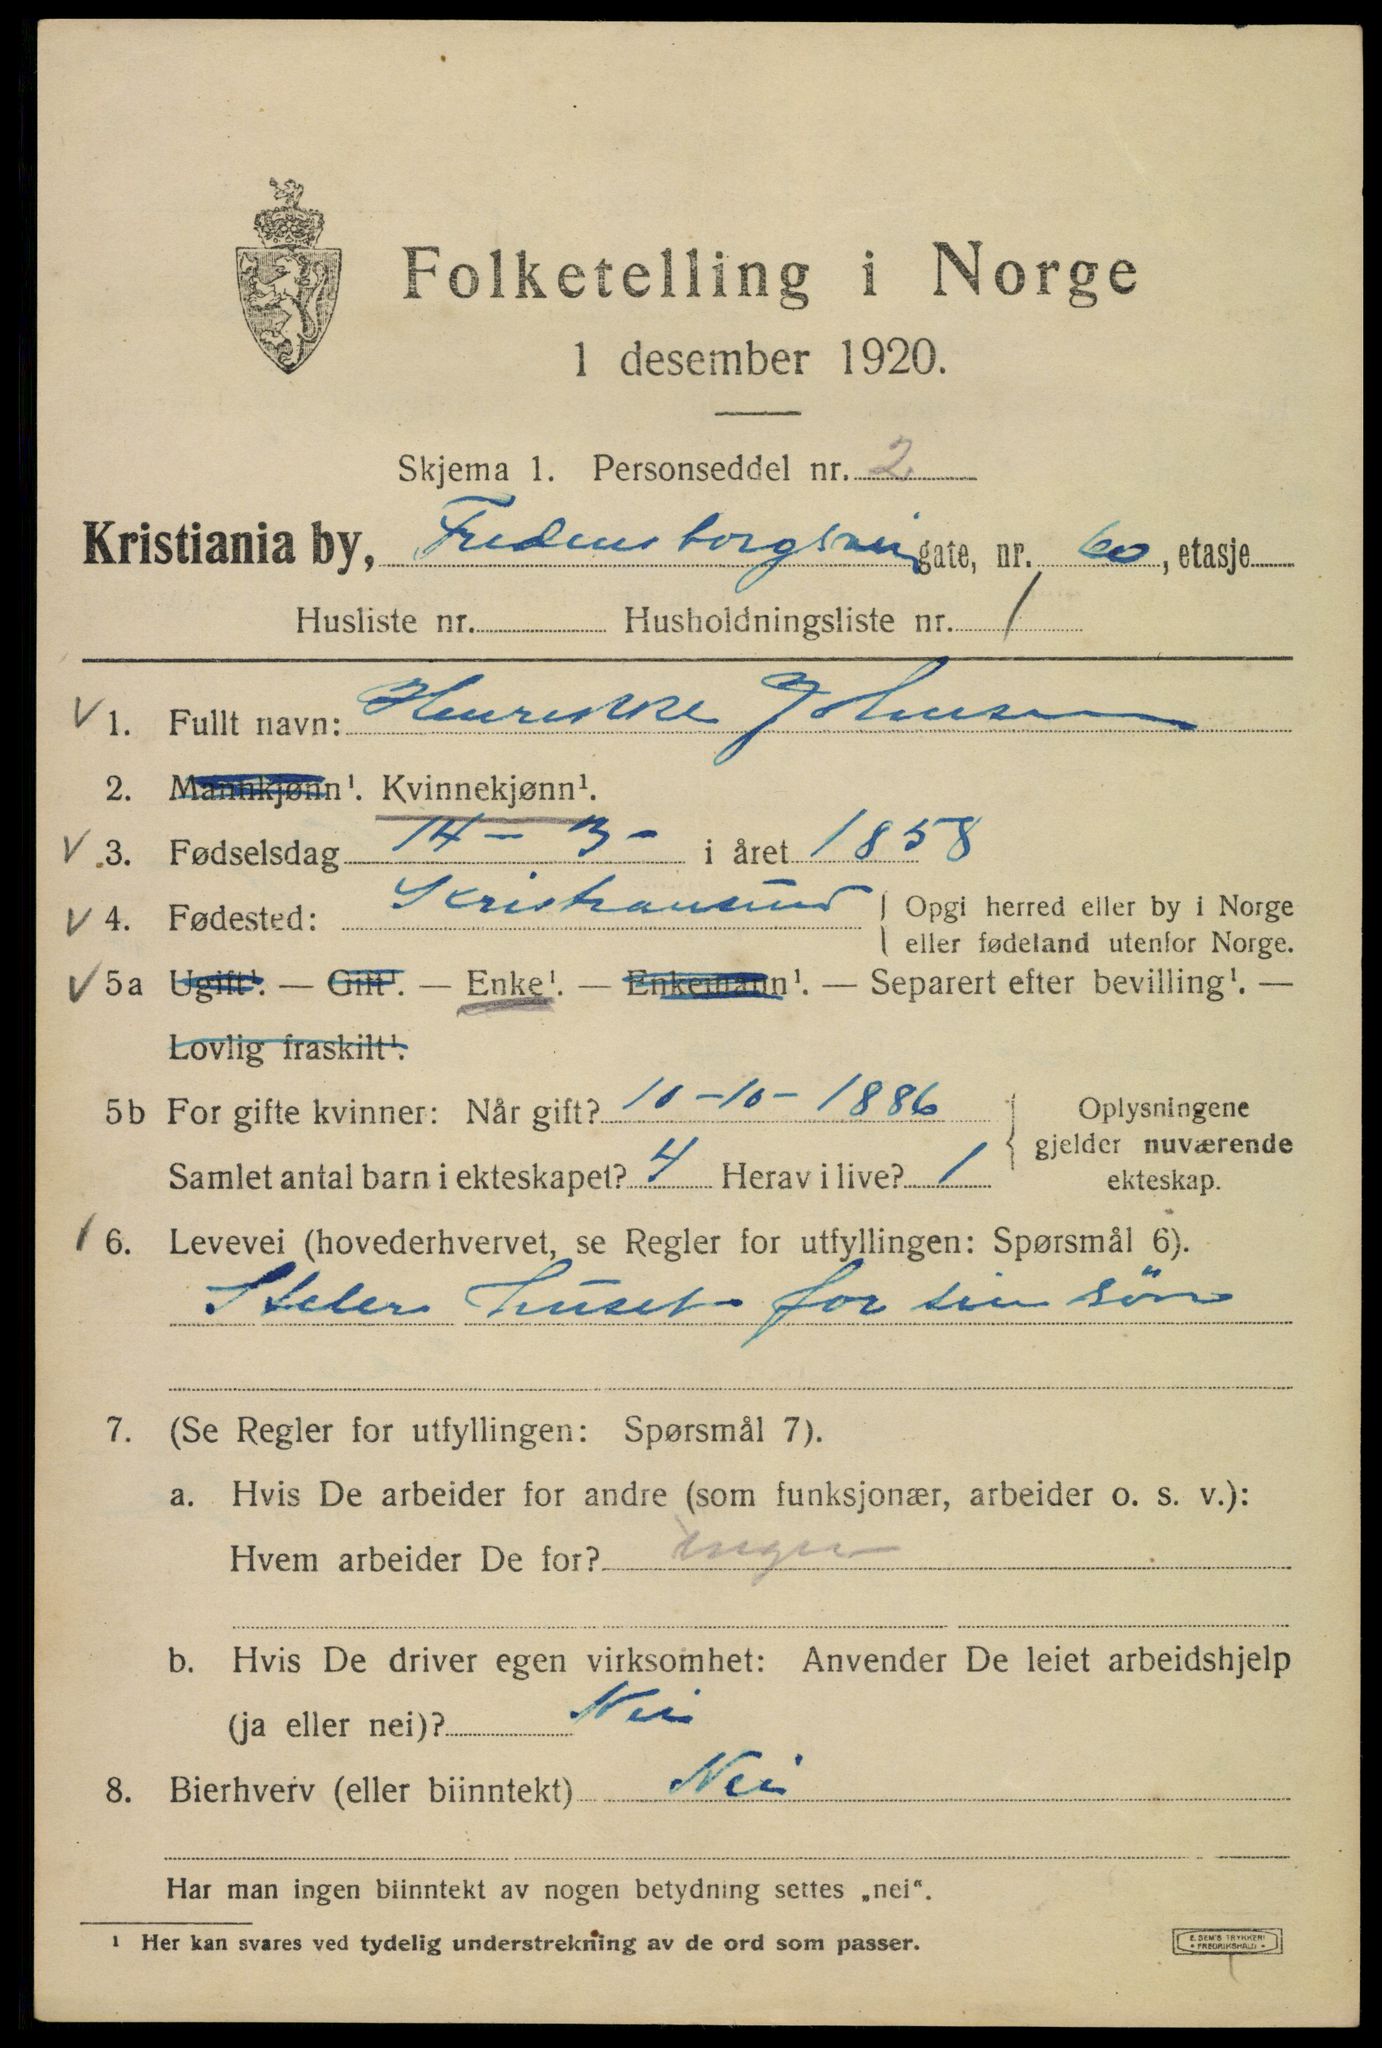 Folketelling i Norge
1 desember 1920.
Skjema 1. Personseddel nr. 2
Kristiania by, Fredensborgsvei gate, nr. 60, etasje
Husliste nr. Husholdningsliste nr. 1
V 1. Fullt navn: Henrikke Johnsen
2. Mannkjønn¹. Kvinnekjønn¹.
V 3. Fødselsdag 14 - 3 - i året 1858
V 4. Fødested: Kristiansund Opgi herred eller by i Norge
eller fødeland utenfor Norge.
V 5a Ugift¹. — Gift¹. — Enke¹. — Enkemann¹. — Separert efter bevilling¹. —
Lovlig fraskilt¹.
5b For gifte kvinner: Når gift? 10-10-1886 Oplysningene
gjelder nuværende
Samlet antal barn i ekteskapet? 4 Herav i live? 1 ekteskap.
6. Levevei (hovederhvervet, se Regler for utfyllingen: Spørsmål 6).
Steler huset for sin sön
7. (Se Regler for utfyllingen: Spørsmål 7).
a. Hvis De arbeider for andre (som funksjonær, arbeider o. s. v.):
Hvem arbeider De for? Ingen
b. Hvis De driver egen virksomhet: Anvender De leiet arbeidshjelp
(ja eller nei)? Nei
8. Bierhverv (eller biinntekt) Nei
Har man ingen biinntekt av nogen betydning settes „nei“.
¹ Her kan svares ved tydelig understrekning av de ord som passer.
E. SEM'S TRYKKERI
• FREDRIKSHALD •